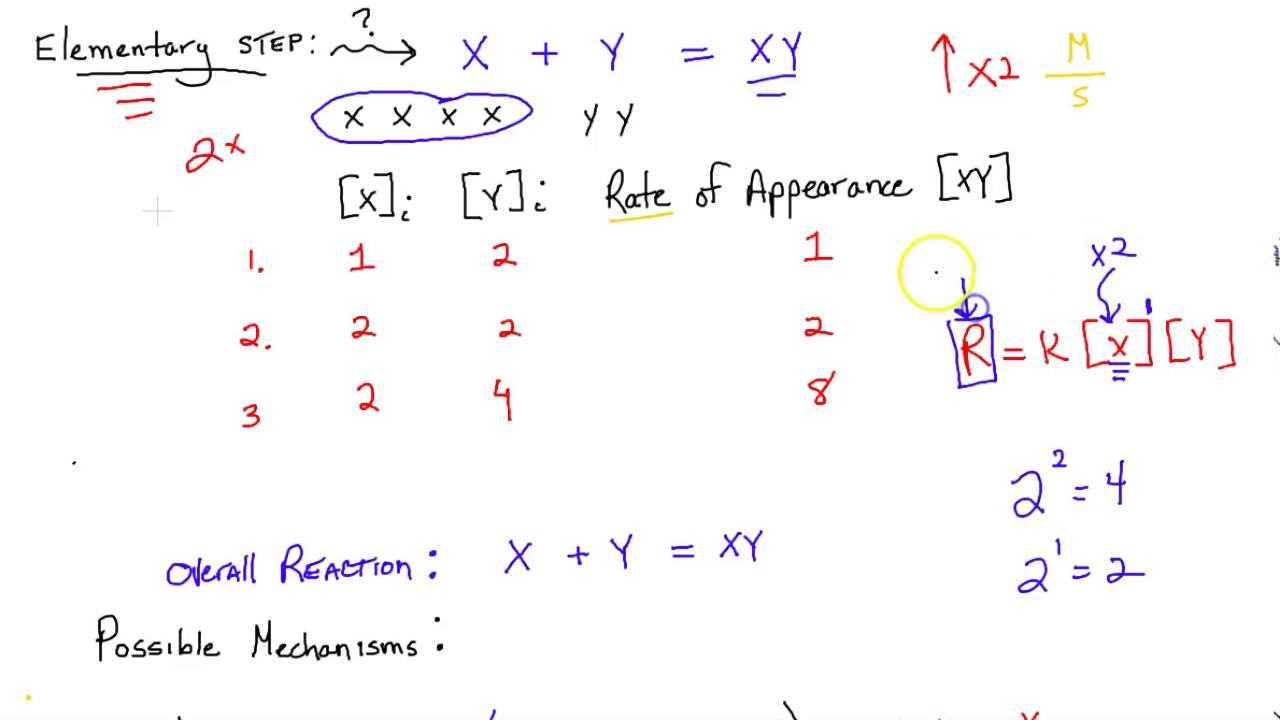 Elementary STEP: ? X + Y = XY
↑ X2 M/S
X X X X Y Y
2x
[X]i [Y]i Rate of Appearance [XY]
1. 1 2 1
2. 2 2 2
3 2 4 8
x2
R = K [X]¹ [Y]
2² = 4
2¹ = 2
Overall REACTION: X + Y = XY
Possible Mechanisms: